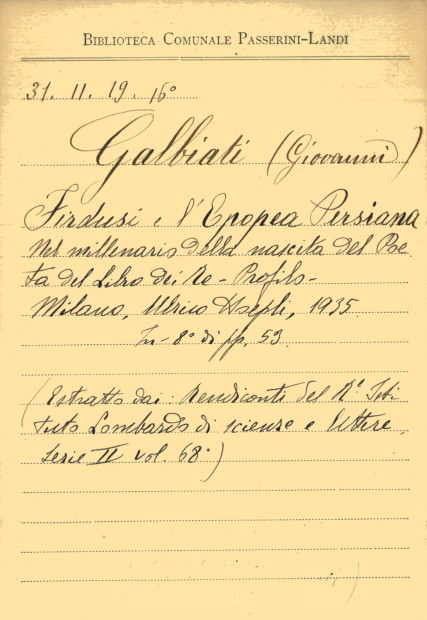 BIBLIOTECA COMUNALE PASSERINI-LANDI
31. 11. 19. 16°
Galbiati (Giovanni)
Firdusi e l'Epopea Persiana
Nel millenario della nascita del Poe
ta del Libro dei Re - Profilo -
Milano, Ulrico Hoepli, 1935
In-8° di pp. 53
(Estratto dai: Rendiconti del R° Isti
tuto Lombardo di scienze e lettere,
Serie II vol. 68°)